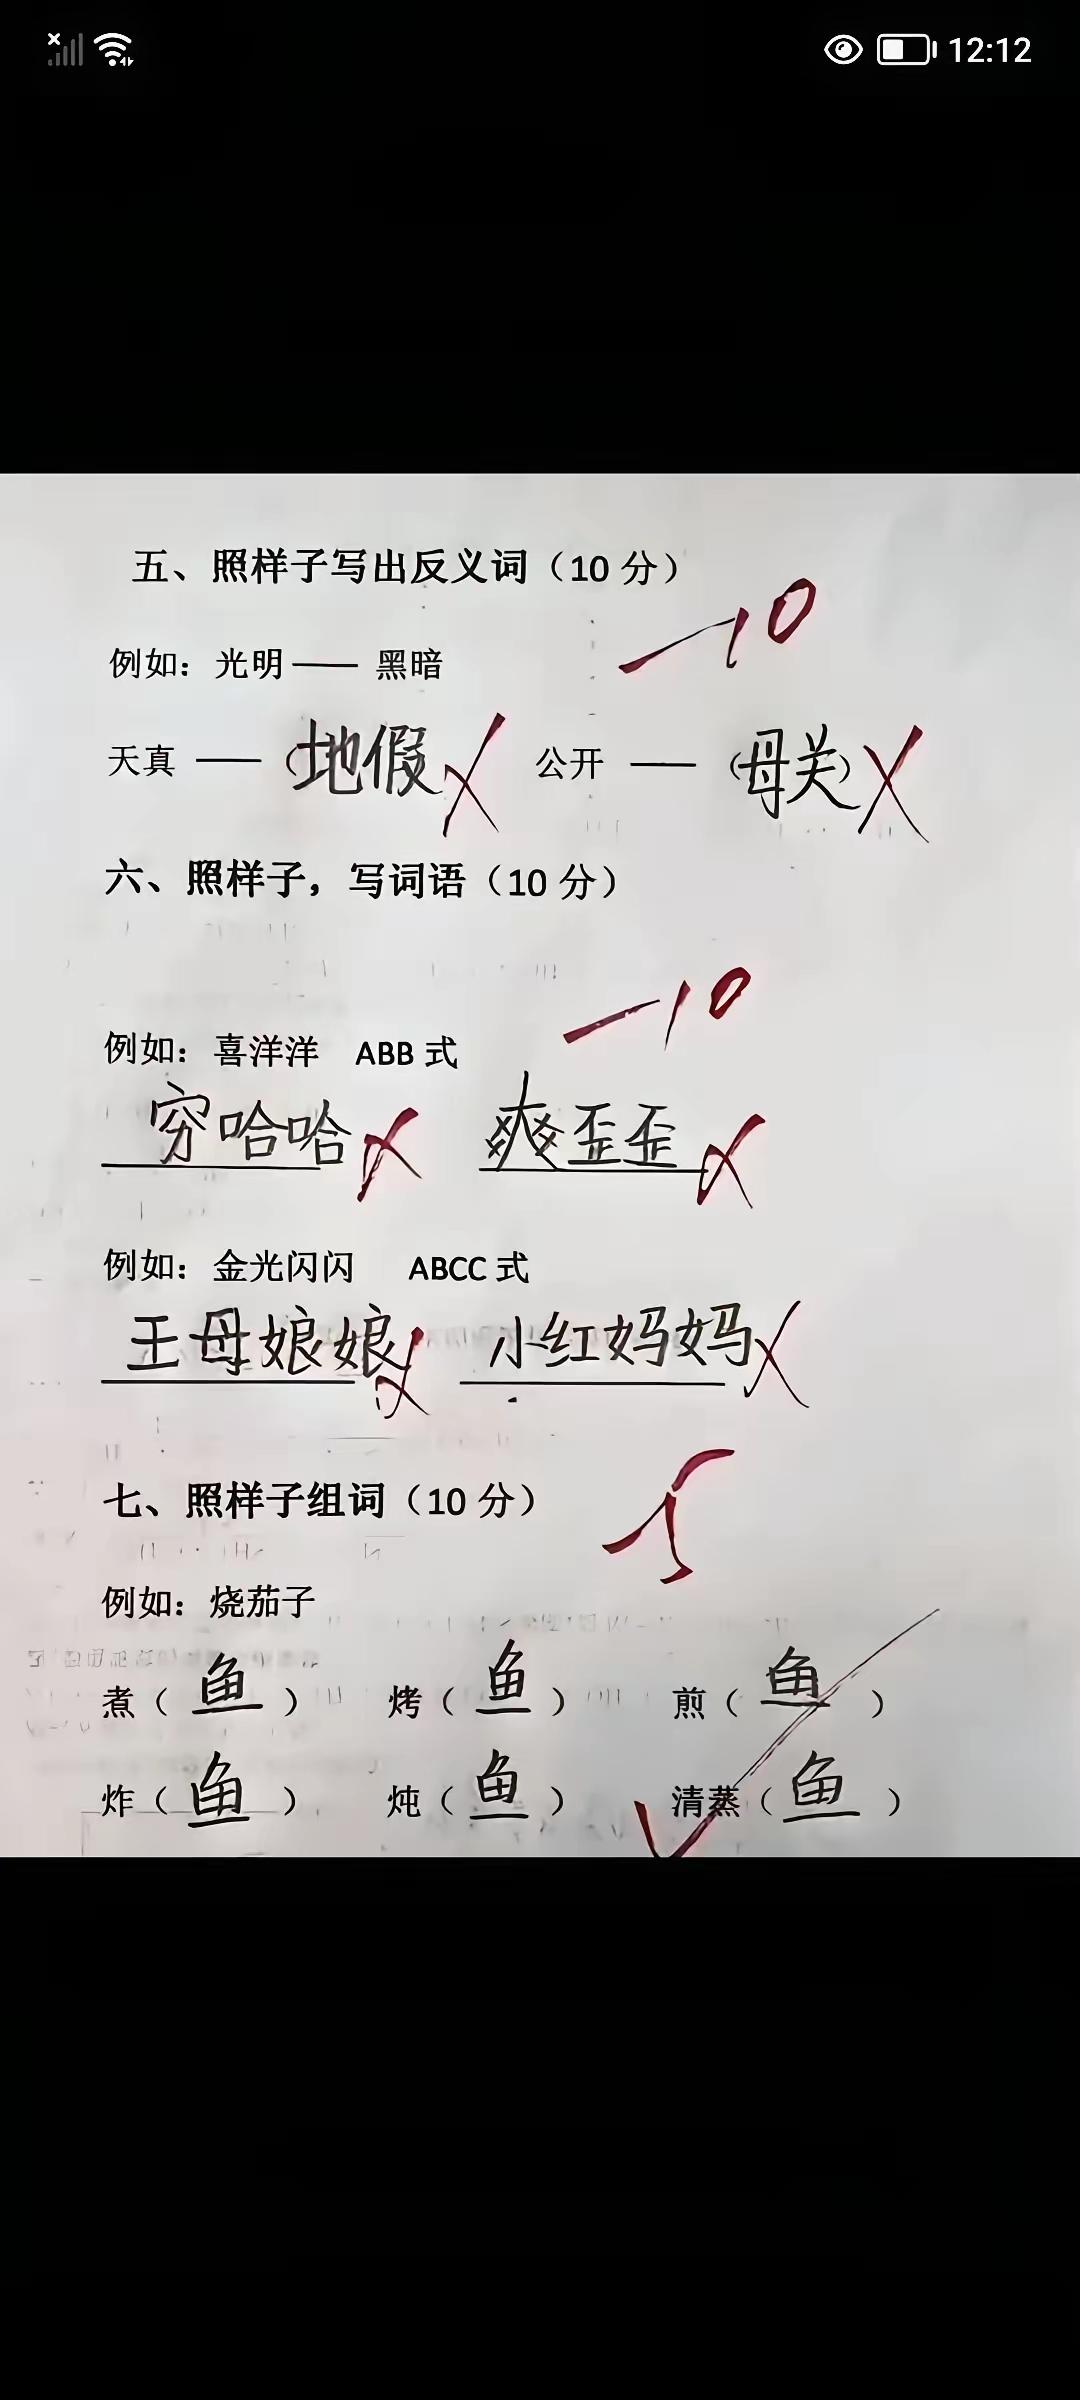 12:12
五、照样子写出反义词（10 分）
-10
例如：光明 —— 黑暗
天真 —— （地假 公开 —— （母关）
六、照样子，写词语（10 分）
-10
例如：喜洋洋 ABB 式
穷哈哈 爽歪歪
例如：金光闪闪 ABCC 式
王母娘娘 小红妈妈
七、照样子组词（10 分）
-5
例如：烧茄子
煮（鱼） 烤（鱼） 煎（鱼）
炸（鱼） 炖（鱼） 清蒸（鱼）